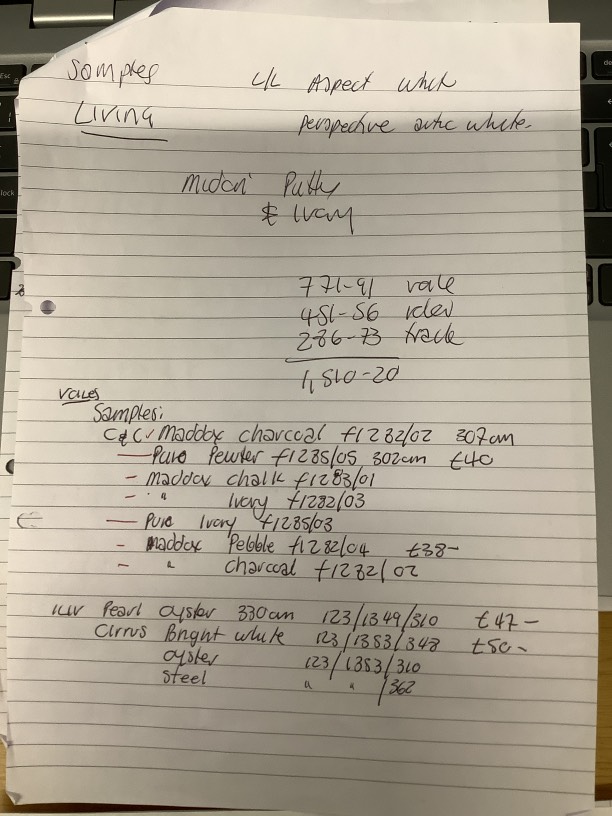 Samples L/L Aspect White
Living perspective arctic white.
Midori Putty
& Ivory
771-91 voile
451-56
286-73 track
1,510-20
Voiles
Samples:
C&C ✓ Maddox charcoal f1282/02 307cm
— Pure Pewter f1285/05 302cm £40
- maddox chalk f1283/01
- " Ivory f1282/03
— Pure Ivory f1285/03
- maddox Pebble f1282/04 £38-
- " charcoal f1282/02
Pearl oyster 330cm 123/1349/310 £47-
Cirrus Bright white 123/1353/348 £50-
oyster 123/1353/310
Steel " " /362